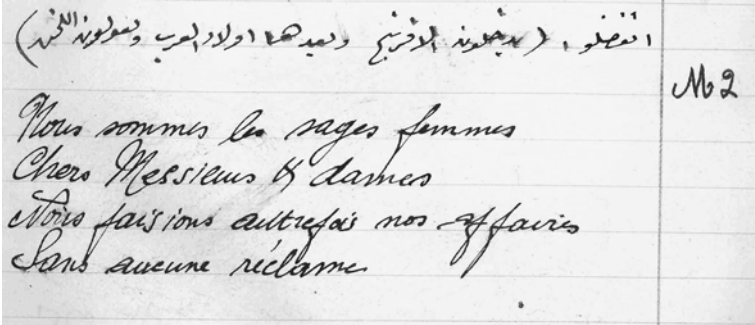 اتفضلوا. (يدخلون الافرنج وبعدها اولاد العرب ويقولون اللحن)
M2
Nous sommes les sages femmes
Chers Messieurs & dames
Nous faisions autrefois nos affaires
Sans aucune réclame